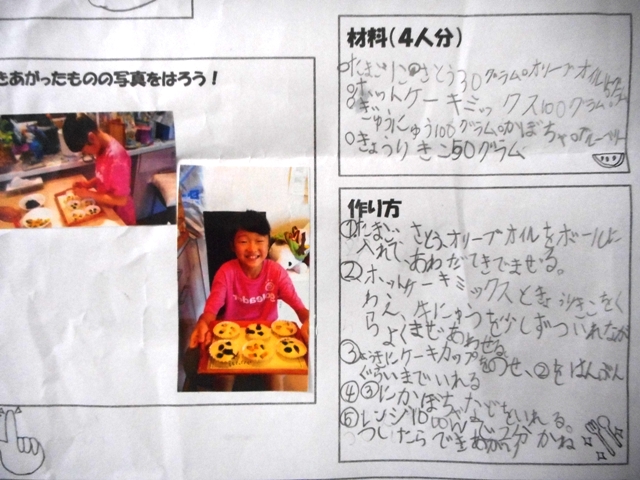 きあがったものの写真をはろう!
材料(4人分)
○たまご1こ○さとう30グラム○オリーブオイル
○ホットケーキミックス100グラム
○ぎゅうにゅう100グラム○かぼちゃ○ブルーベリー
○きょうりきこ50グラム
作り方
①たまご、さとう、オリーブオイルをボールに
入れて、あわだてきでまぜる。
②ホットケーキミックスときょうりきこをく
わえ、牛にゅうを少しずついれなが
らよくまぜあわせる。
③にケーキカップをのせ、②をはんぶん
ぐらいまでいれる
④③にかぼちゃなどをいれる。
⑤レンジ100で2分かねつしたらできあがり